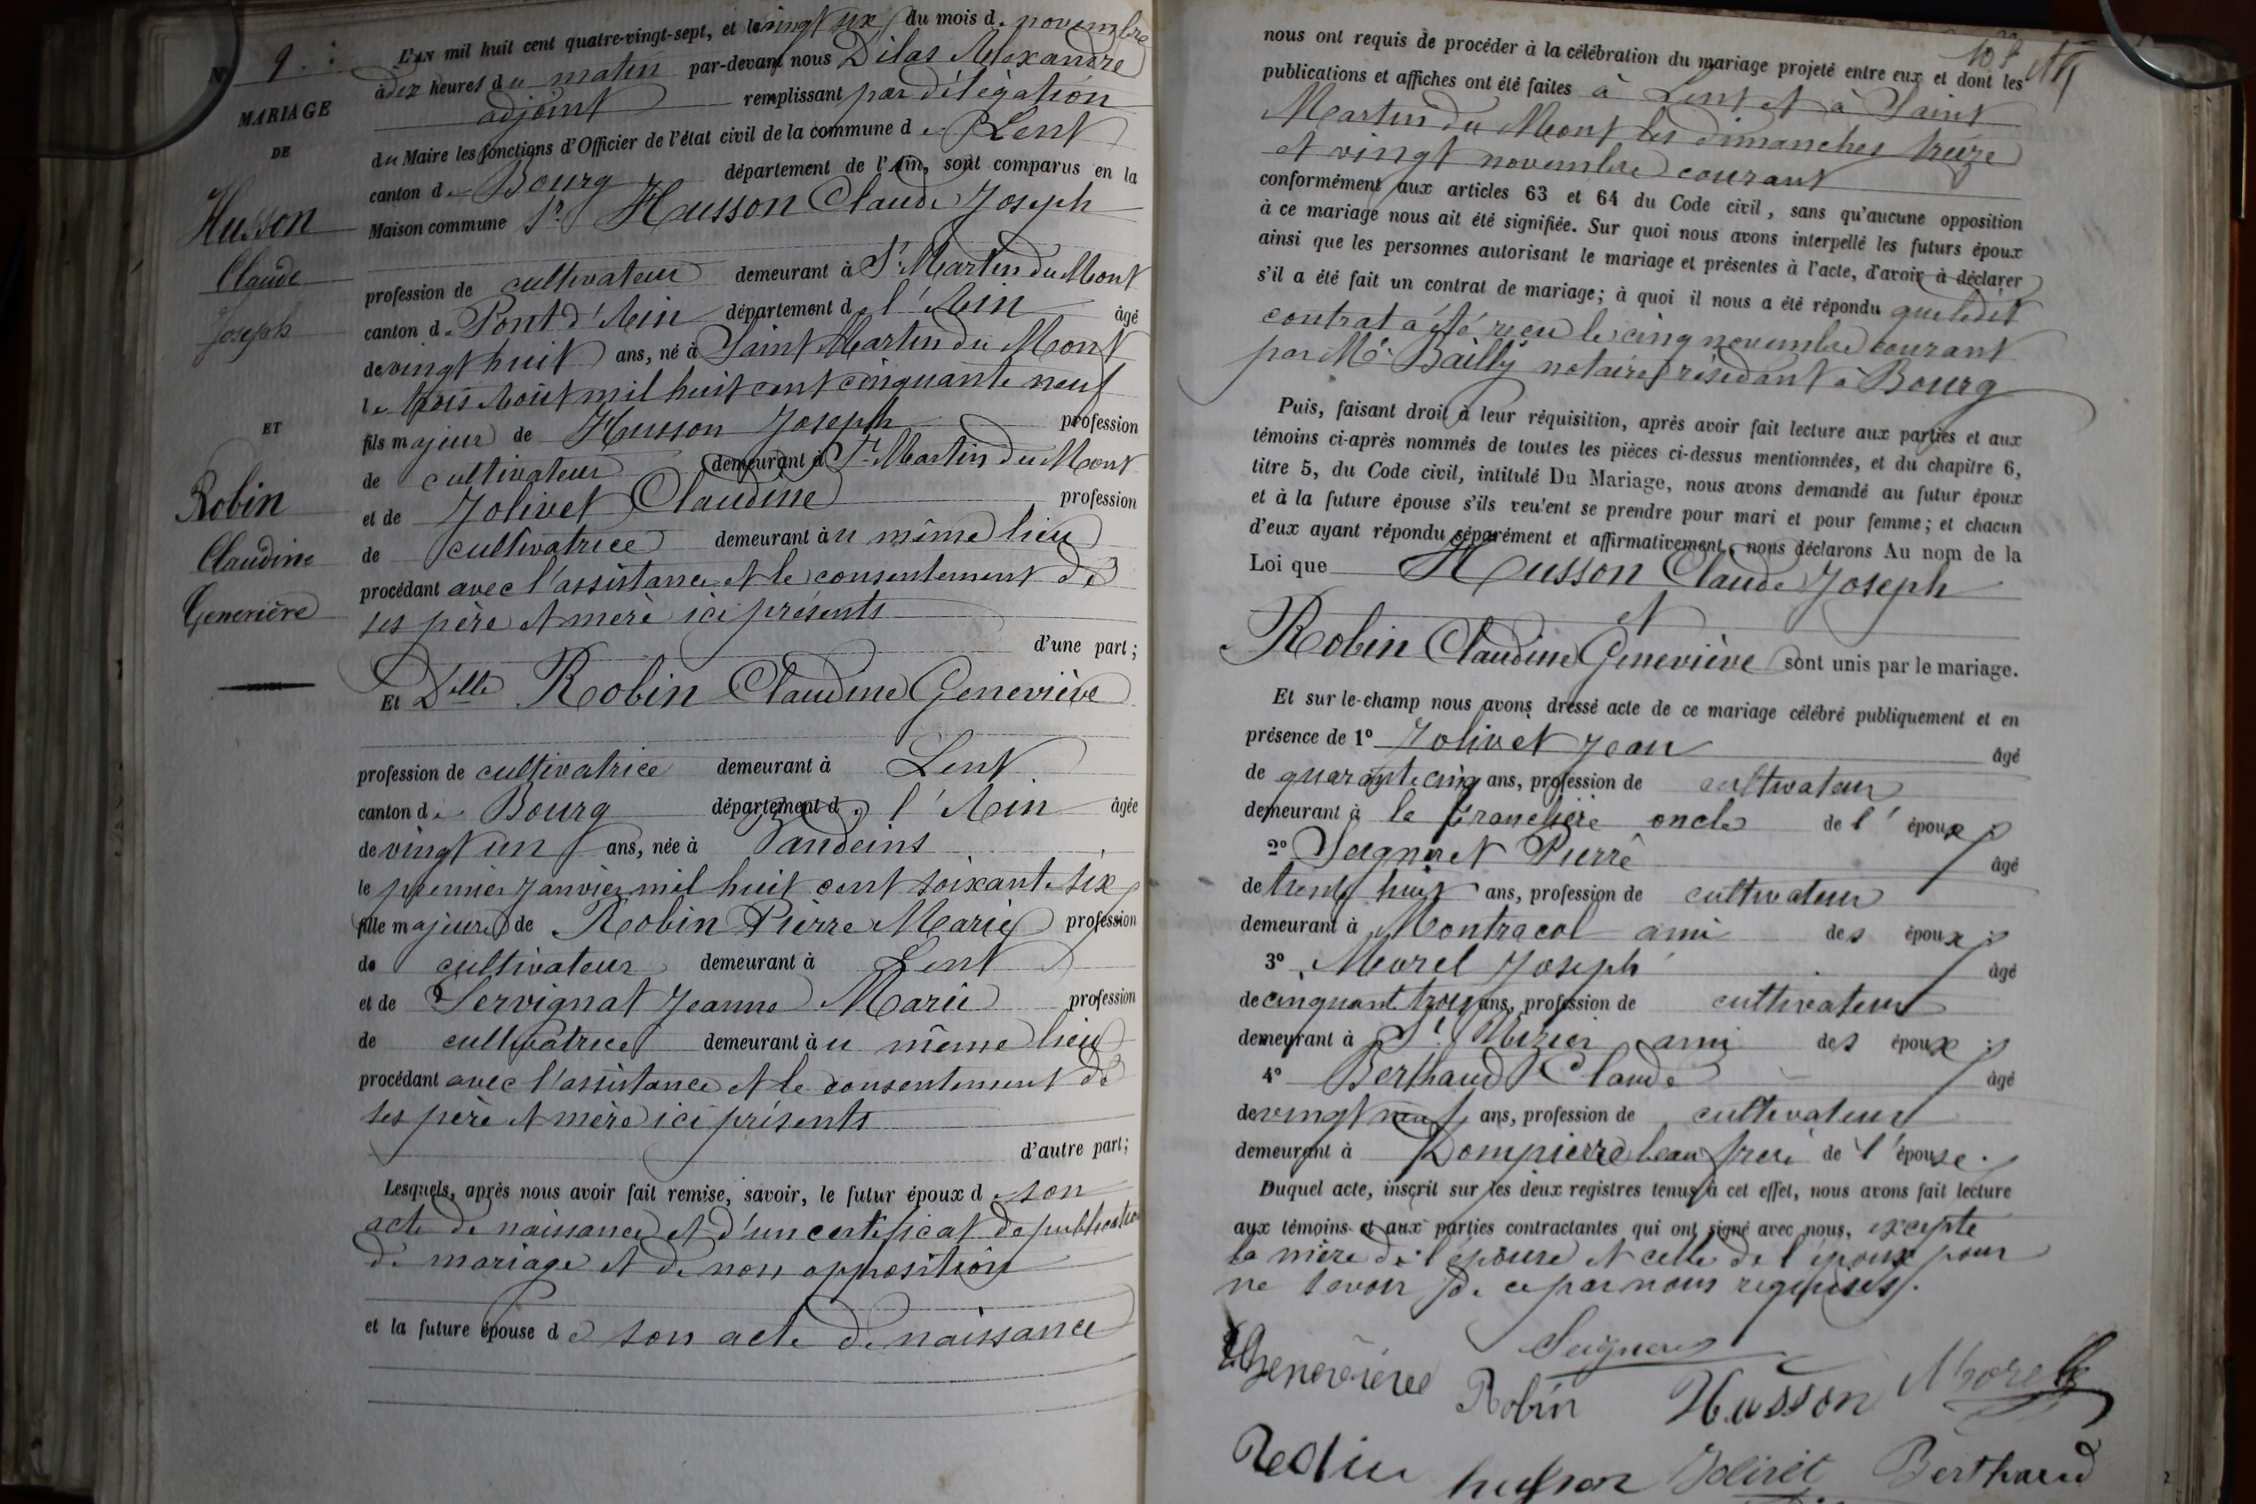 N° 9.
MARIAGE
DE
Husson
Claude
Joseph
ET
Robin
Claudine
Geneviève
L'AN mil huit cent quatre-vingt-sept, et le vingt six du mois de novembre
à dix heures du matin par-devant nous Dilas Alexandre
adjoint remplissant par délégation
du Maire les fonctions d'Officier de l'état civil de la commune de Lent
canton de Bourg département de l'Ain, sont comparus en la
Maison commune Sr Husson Claude Joseph
profession de cultivateur demeurant à St Martin du Mont
canton de Pont d'Ain département de l'Ain âgé
de vingt huit ans, né à Saint Martin du Mont
le trois Août mil huit cent cinquante neuf
fils majeur de Husson Joseph profession
de cultivateur demeurant à St Martin du Mont
et de Jolivet Claudine profession
de cultivatrice demeurant au même lieu
procédant avec l'assistance et le consentement de
ses père et mère ici présents
d'une part;
Et Delle Robin Claudine Geneviève
profession de cultivatrice demeurant à Lent
canton de Bourg département de l'Ain âgée
de vingt un ans, née à Vandeins
le premier Janvier mil huit cent soixante six
fille majeure de Robin Pierre Marie profession
de cultivateur demeurant à Lent
et de Servignat Jeanne Marie profession
de cultivatrice demeurant au même lieu
procédant avec l'assistance et le consentement de
ses père et mère ici présents
d'autre part;
Lesquels, après nous avoir fait remise, savoir, le futur époux de son
acte de naissance et d'un certificat de publication
de mariage et de non opposition
et la future épouse de son acte de naissance
nous ont requis de procéder à la célébration du mariage projeté entre eux et dont les
publications et affiches ont été faites à Lent et à Saint
Martin du Mont les dimanches treize
et vingt novembre courant
conformément aux articles 63 et 64 du Code civil, sans qu'aucune opposition
à ce mariage nous ait été signifiée. Sur quoi nous avons interpellé les futurs époux
ainsi que les personnes autorisant le mariage et présentes à l'acte, d'avoir à déclarer
s'il a été fait un contrat de mariage; à quoi il nous a été répondu que ledit
contrat a été reçu le cinq novembre courant
par Me Bailly notaire résidant à Bourg
Puis, faisant droit à leur réquisition, après avoir fait lecture aux parties et aux
témoins ci-après nommés de toutes les pièces ci-dessus mentionnées, et du chapitre 6,
titre 5, du Code civil, intitulé Du Mariage, nous avons demandé au futur époux
et à la future épouse s'ils veulent se prendre pour mari et pour femme; et chacun
d'eux ayant répondu séparément et affirmativement, nous déclarons Au nom de la
Loi que Husson Claude Joseph
et
Robin Claudine Geneviève sont unis par le mariage.
Et sur-le-champ nous avons dressé acte de ce mariage célébré publiquement et en
présence de 1° Jolivet Jean âgé
de quarante cinq ans, profession de cultivateur
demeurant à la Tranclière oncle de l'époux;
2° Seigneret Pierre âgé
de trente huit ans, profession de cultivateur
demeurant à Montracol ami des époux;
3° Morel Joseph âgé
de cinquante trois ans, profession de cultivateur
demeurant à St ami des époux;
4° Berthaud Claude âgé
de vingt neuf ans, profession de cultivateur
demeurant à Dompierre beau frère de l'épouse.
Duquel acte, inscrit sur les deux registres tenus à cet effet, nous avons fait lecture
aux témoins et aux parties contractantes qui ont signé avec nous, excepté
la mère de l'épouse et celle de l'époux pour
ne savoir de ce par nous requises.
Geneviève Robin Husson Morel
Robin husson Jolivet Berthaud